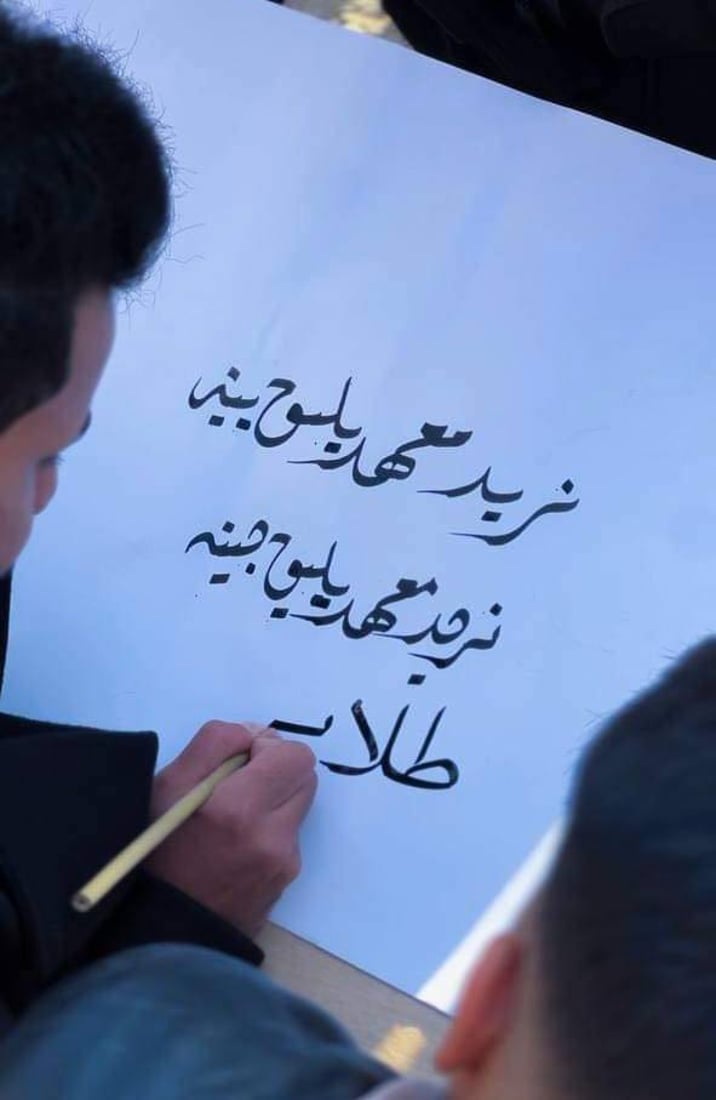 نريد معهد يليق بينه
نريد معهد يليق بينه
طلاب